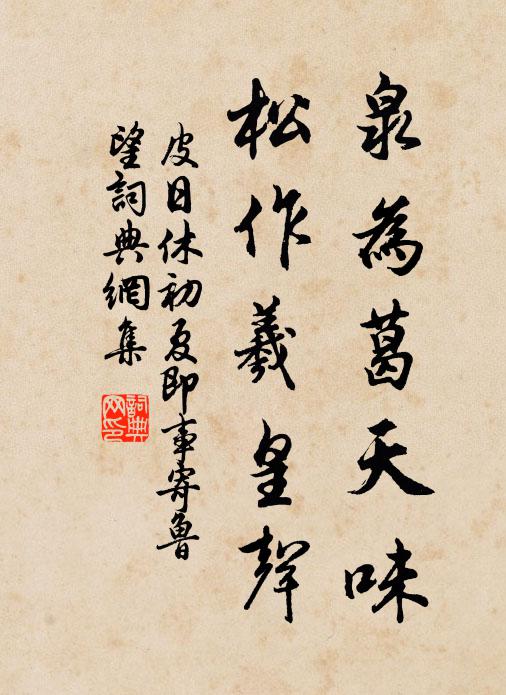 泉為葛天味
松作羲皇聲
皮日休初夏即事寄魯
望詞典網集
詞典
网印